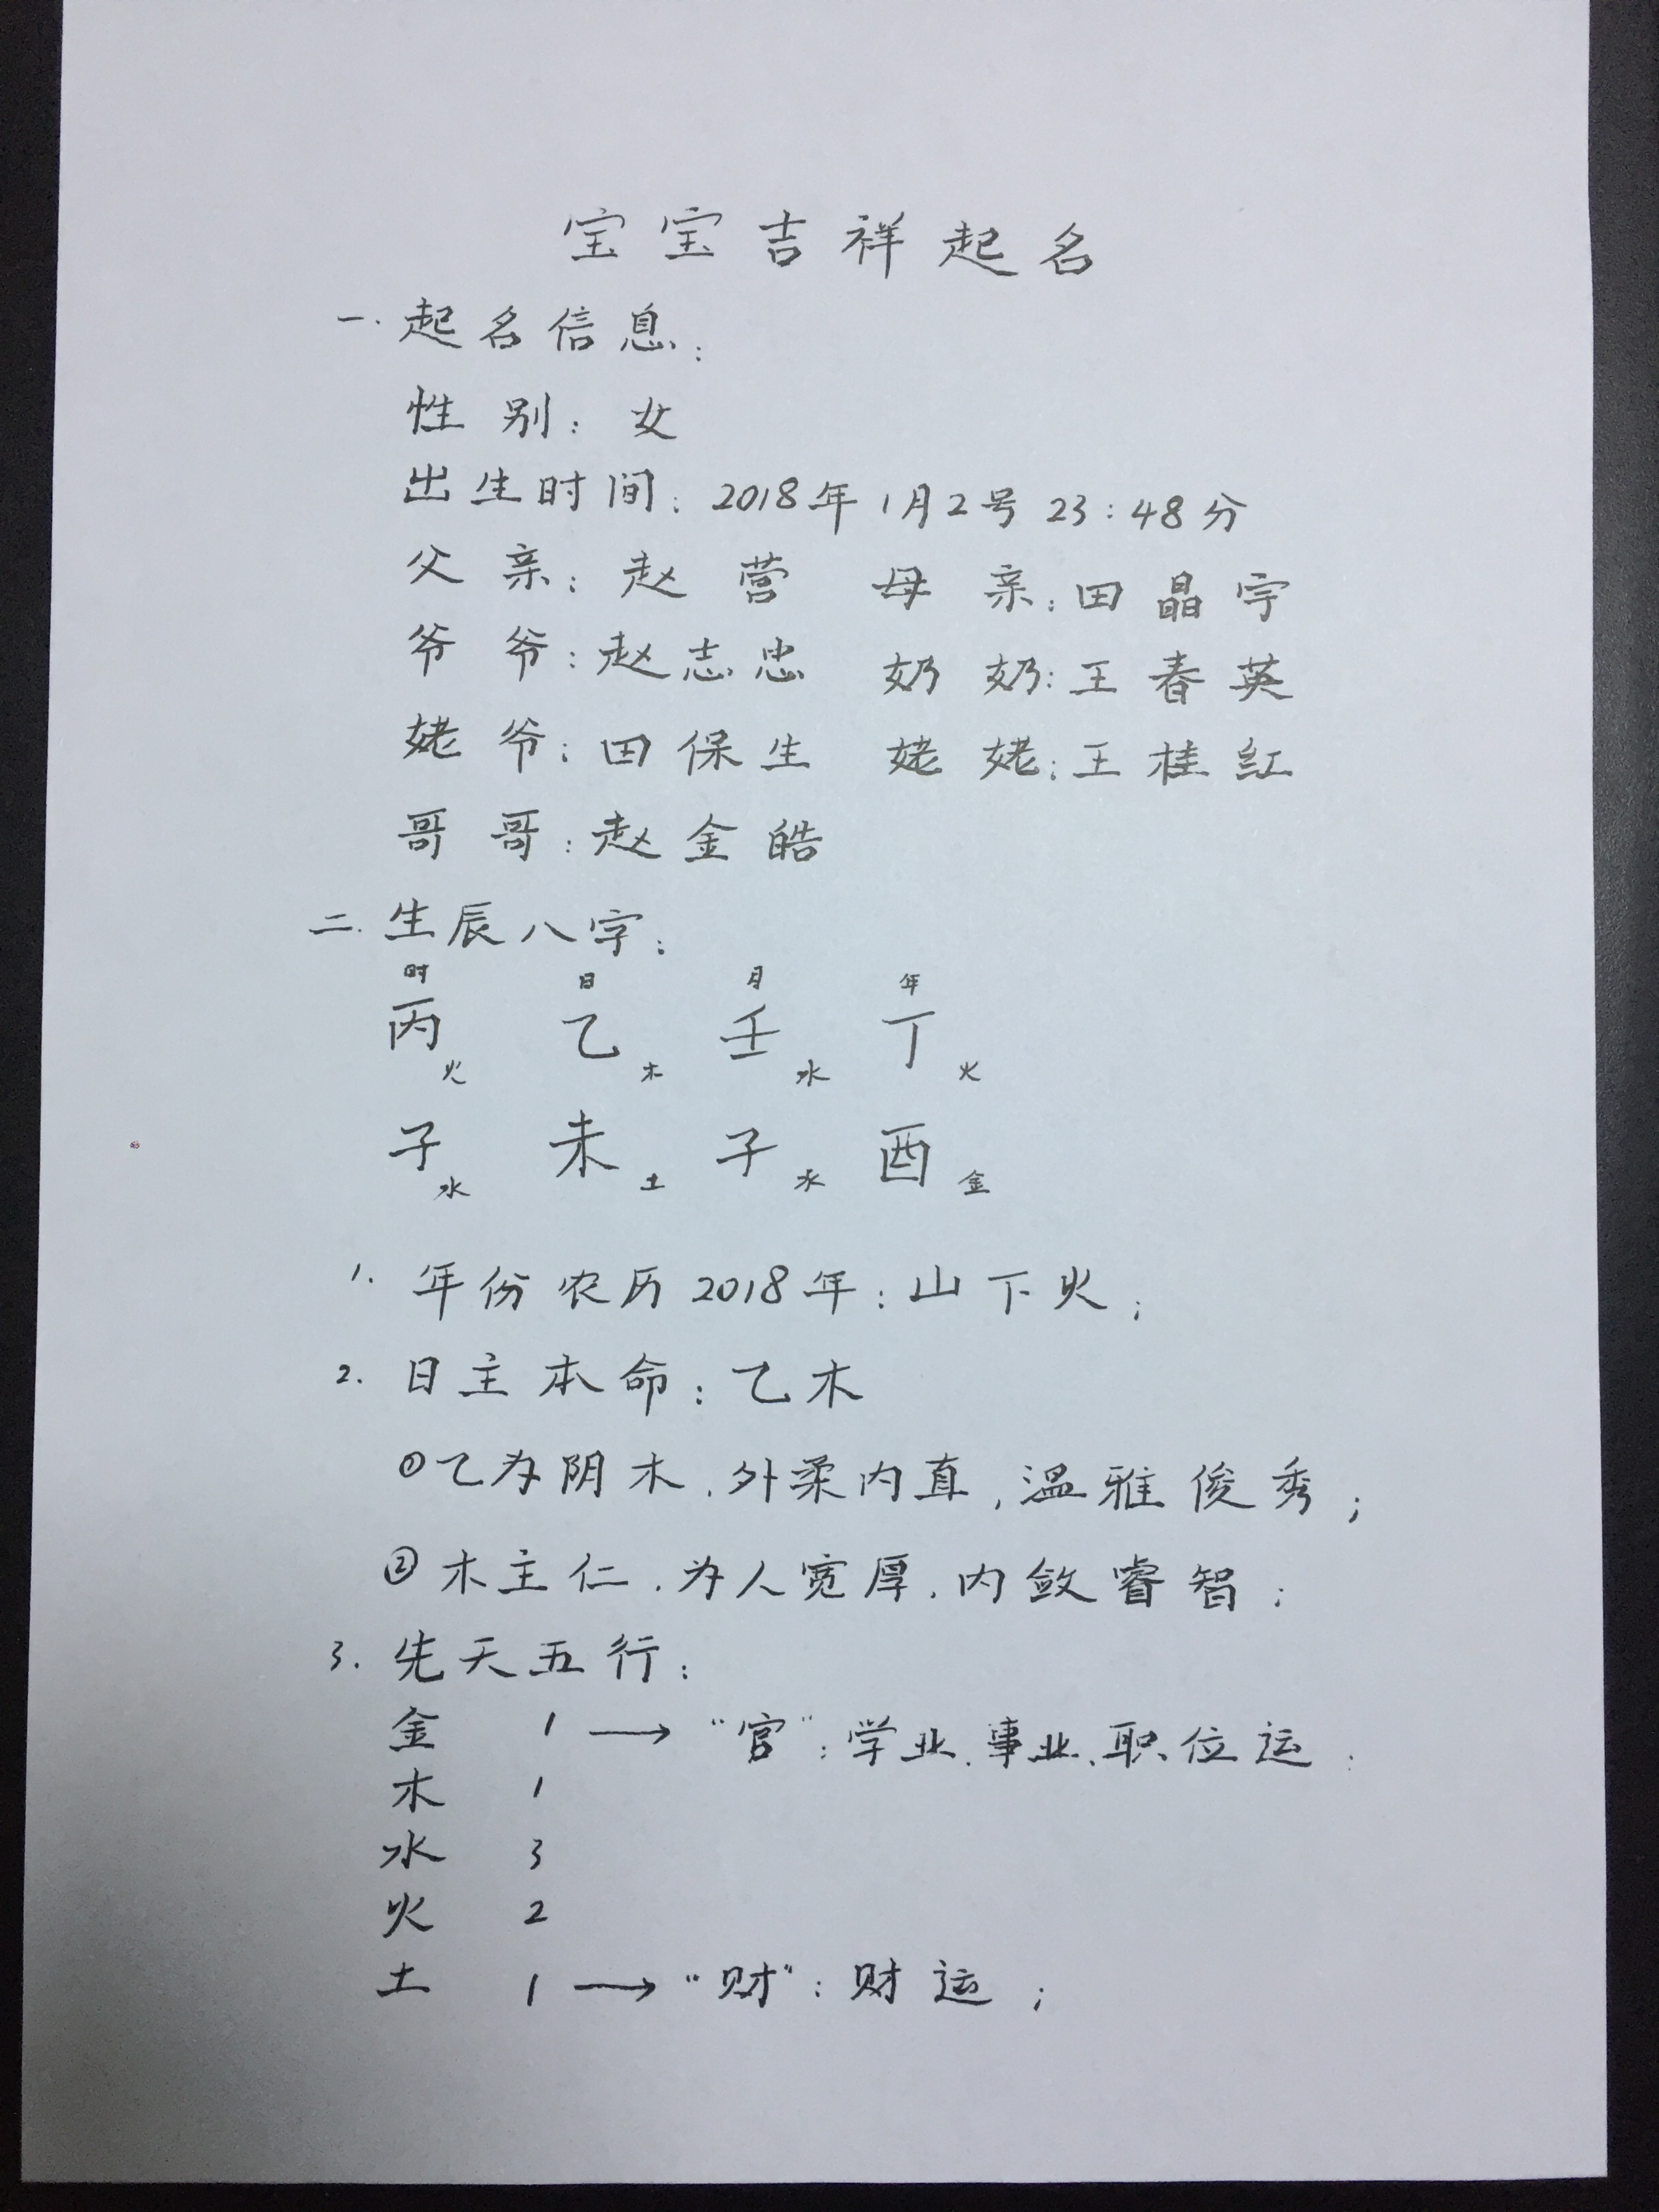 宝宝吉祥起名
一.起名信息:
性别:女
出生时间:2018年1月2号23:48分
父亲:赵营 母亲:田晶宇
爷爷:赵志忠 奶奶:王春英
姥爷:田保生 姥姥:王桂红
哥哥:赵金皓
二.生辰八字:
时 日 月 年
丙火 乙木 壬水 丁火
子水 未土 子水 酉金
1.年份农历2018年:山下火;
2.日主本命:乙木
①乙为阴木,外柔内直,温雅俊秀;
②木主仁,为人宽厚,内敛睿智;
3.先天五行:
金 1 → "官":学业、事业、职位运:
木 1
水 3
火 2
土 1 → "财":财运;